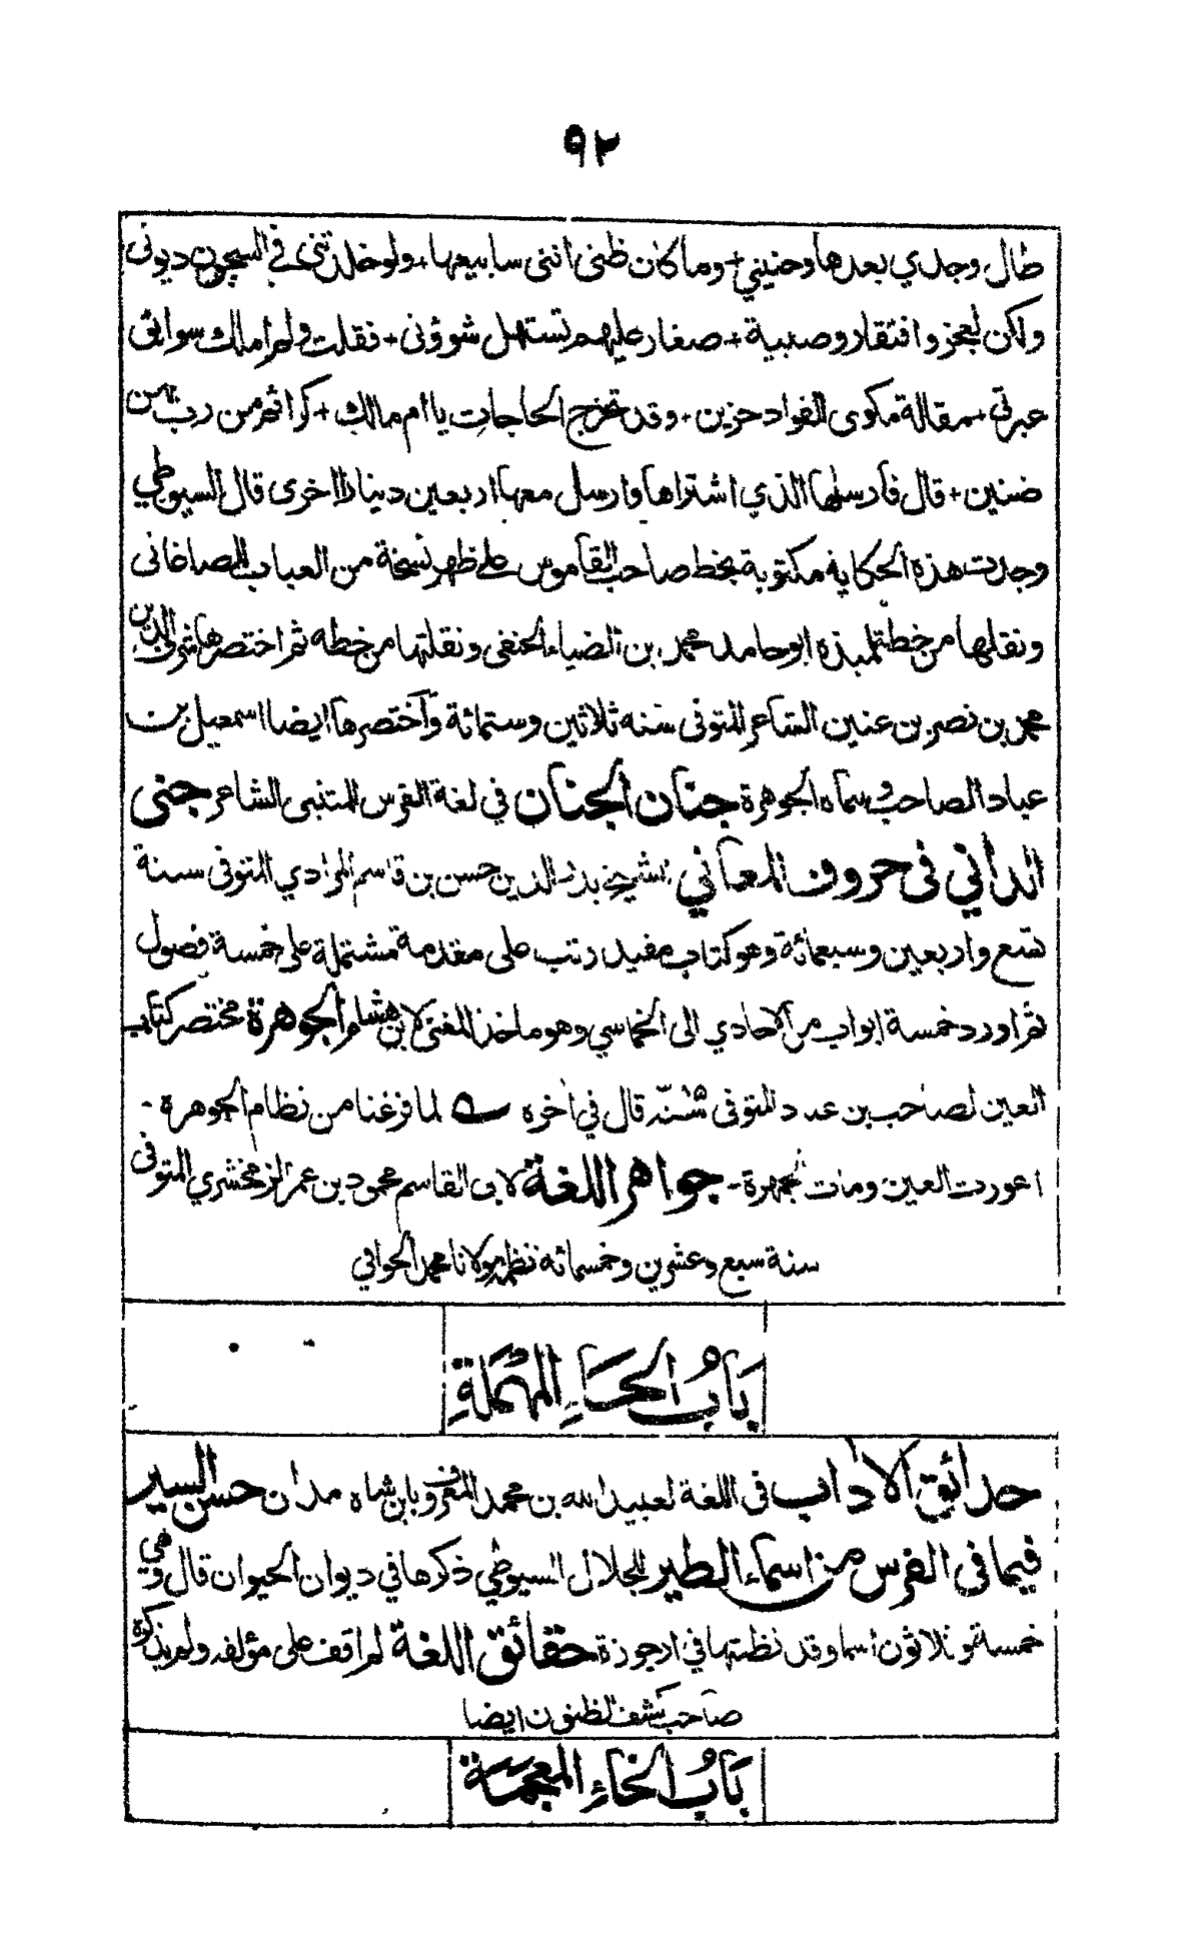 ٩٢
طال وجدي بعدها وحنيني + وما كان ظنى اننى سابيعها + ولو خلدتنى فے السجون ديونى
ولكن لعجز وافتقار وصبية + صغار عليهم تستهل شوؤنى + فقلت ولم املك سوابق
عبرتى + مقالة مكوى الفواد حزين + وقد تخرج الحاجات يا ام مالك + كرائم من رب بهن
ضنين + قال فارسلها الذي اشتراها وارسل معها اربعين دينارا اخرى قال السيوطي
وجدت هذه الحكاية مكتوبة بخط صاحب القاموس على ظهر نسخة من العباب للصاغانى
ونقلها من خط تلميذه ابو حامد محمد بن الضياء الحنفى ونقلتها من خطه ثم اختصرها شرف الدين
محمد بن نصر بن عنين الشاعر المتوفى سنه ثلاثين وستمائة وآختصرها ايضا اسمعيل بن
عباد الصاحب وسماه الجوهرة جنان الجنان في لغة الفرس للمتنبى الشاعر جنى
الدانى فى حروف المعانى للشيخ بدر الدين حسن بن قاسم المرادي المتوفى سنة
تسع واربعين وسبعمائة وهو كتاب مفيد رتب على مقدمة مشتملة على خمسة فصول
ثم اورد خمسة ابواب من الاحادي الى الخماسي وهو ماخذ المغنى لابن هشام الجوهرة مختصر كتاب
العين لصاحب بن عباد المتوفى سنة قال في اخره لما فرغنا من نظام الجوهرة -
اعورت العين ومات الجمهرة - جواهر اللغة لابى القاسم محمود بن عمر الزمخشري المتوفى
سنة سبع وعشرين وخمسمائه نظمه مولانا محمد الخوافي
بَابُ الحَاءِ المُهمَلَةِ
حدائق الاداب فى اللغة لعبيد الله بن محمد المعروف بابن شاه مردان حسن السير
فيما فى الفرس من اسماء الطير للجلال السيوطي ذكرها في ديوان الحيوان قال وهي
خمسة وثلاثون اسما وقد نظمتها في ارجوزة حقائق اللغة لم اقف على مؤلفه ولم يذكره
صاحب كشف الظنون ايضا
بَابُ الخَاءِ المعجمة